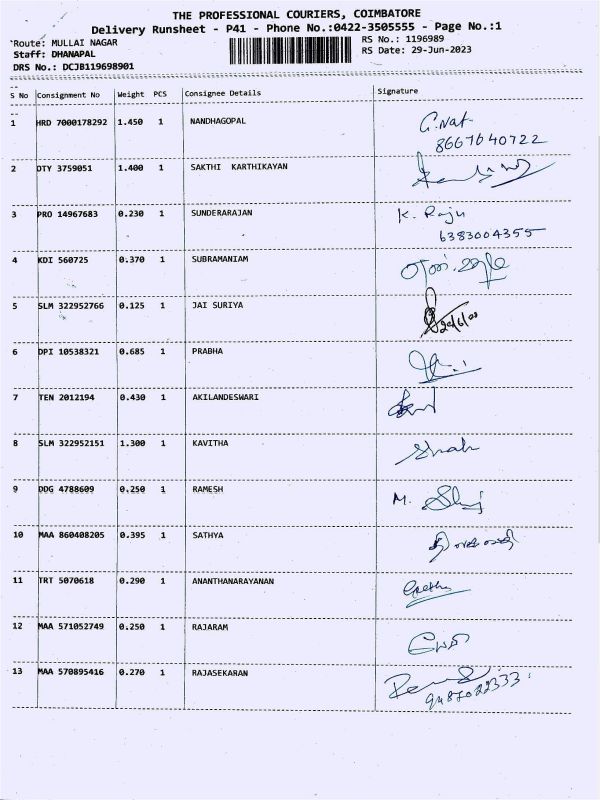 THE PROFESSIONAL COURIERS, COIMBATORE
Delivery Runsheet - P41 - Phone No.:0422-3505555 - Page No.:1
Route: MULLAI NAGAR
RS No.: 1196989
Staff: DHANAPAL
RS Date: 29-Jun-2023
DRS No.: DCJB119698901
S No Consignment No Weight PCS Consignee Details Signature
1 HRD 7000178292 1.450 1 NANDHAGOPAL G.Nat
8667640722
2 DTY 3759051 1.400 1 SAKTHI KARTHIKAYAN
3 PRO 14967683 0.230 1 SUNDERARAJAN K. Raju
6383004355
4 KDI 560725 0.370 1 SUBRAMANIAM
5 SLM 322952766 0.125 1 JAI SURIYA
6 DPI 10538321 0.685 1 PRABHA
7 TEN 2012194 0.430 1 AKILANDESWARI
8 SLM 322952151 1.300 1 KAVITHA
9 DDG 4788609 0.250 1 RAMESH M.
10 MAA 860408205 0.395 1 SATHYA
11 TRT 5070618 0.290 1 ANANTHANARAYANAN Geetha
12 MAA 571052749 0.250 1 RAJARAM
13 MAA 570895416 0.270 1 RAJASEKARAN
9487022333